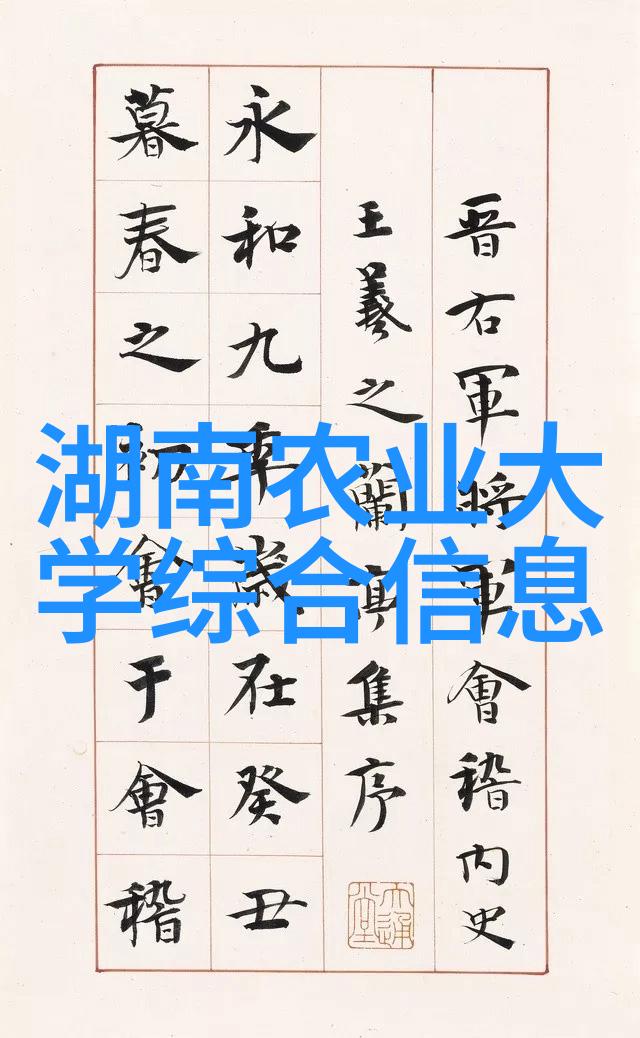 晋右軍將軍會稽内史
王羲之蘭亭集序
永和九年歲在癸丑
暮春之初會于會稽
湖南农业大
学综合信息